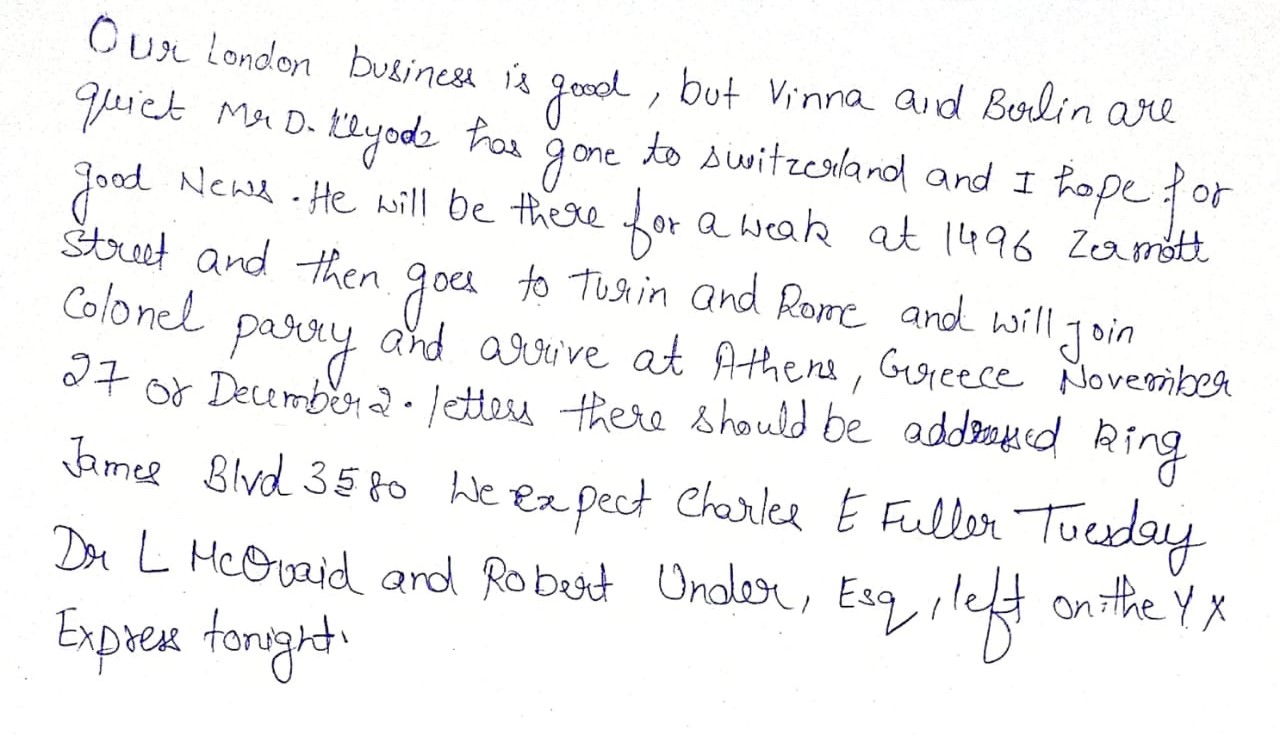 Our London business is good, but Vinna and Berlin are
quiet Mr D. has gone to switzerland and I hope for
good News. He will be there for a weak at 1496 Zermott
Street and then goes to Turin and Rome and will join
Colonel parry and arrive at Athens, Greece November
27 or December 2. letters there should be addressed King
James Blvd 3580 We expect Charles E Fuller Tuesday
Dr L McQuaid and Robert Under, Esq, left on the Y X
Express tonight.